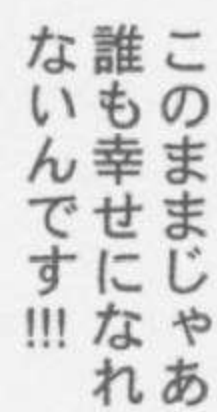 このままじゃあ
誰も幸せになれ
ないんです!!!